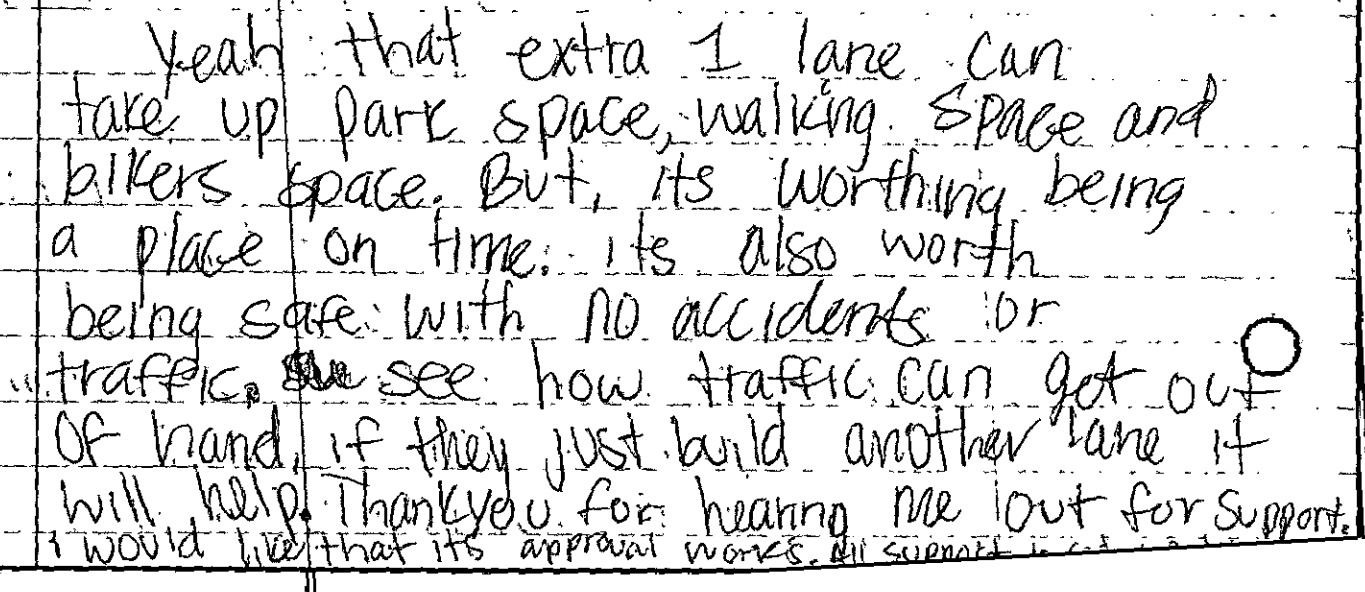 Yeah that extra 1 lane can
take up park space, walking space and
bikers space. But, its worthing being
a place on time. its also worth
being safe with no accidents or
traffic. see how traffic can get out
of hand, if they just build another lane it
will help. Thankyou for hearing me out for support.
i would like that its approval works. All support